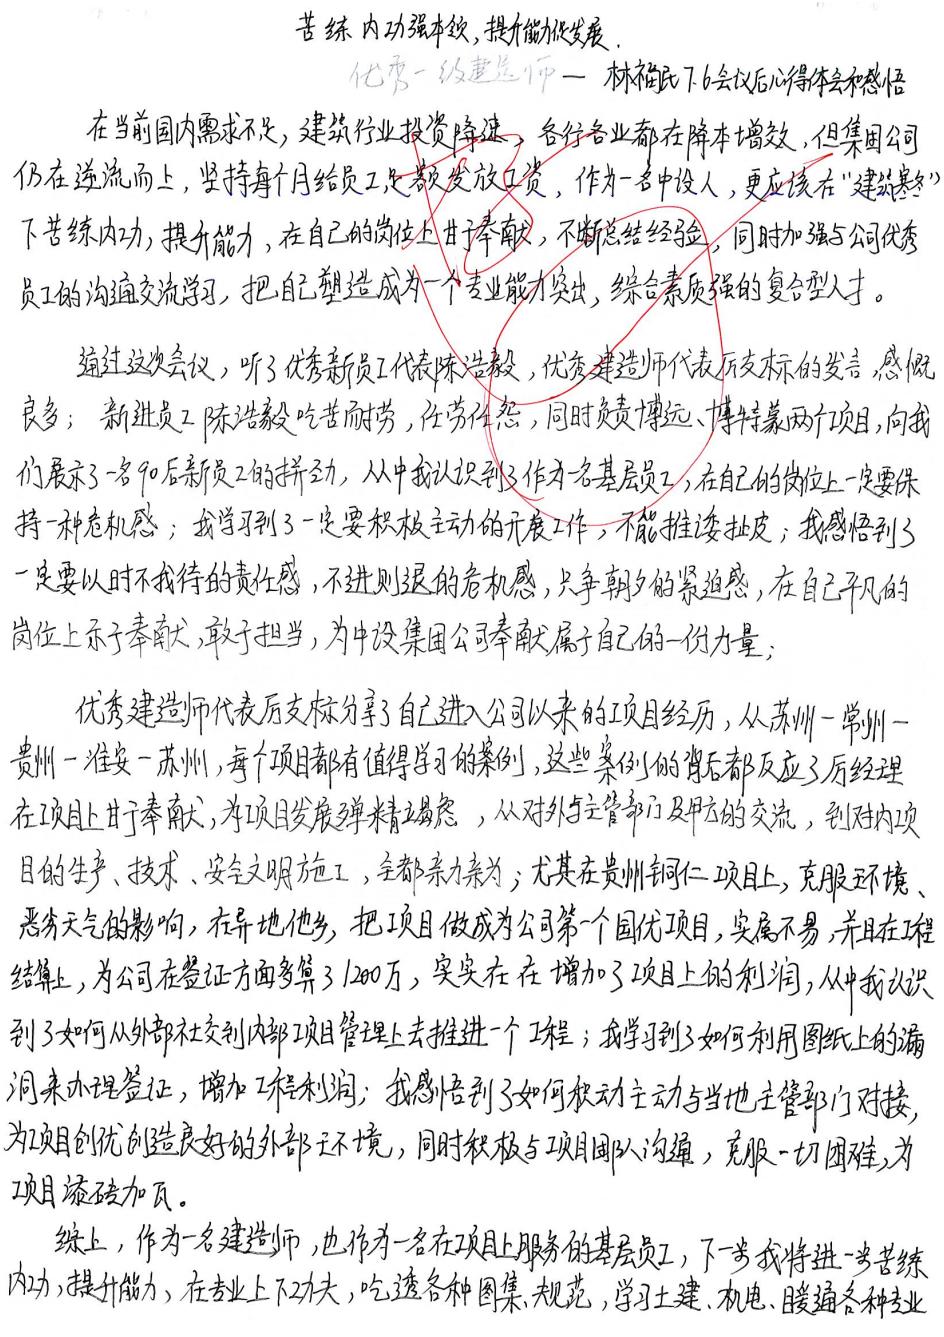 苦练内功强本领,提升能力促发展.
优秀一级建造师— 林福民7.6会议后心得体会和感悟
在当前国内需求不足,建筑行业投资降速,各行各业都在降本增效,但集团公司
仍在逆流而上,坚持每个月给员工足额发放工资,作为一名中设人,更应该在“建筑寒冬”
下苦练内功,提升能力,在自己的岗位上甘于奉献,不断总结经验,同时加强与公司优秀
员工的沟通交流学习,把自己塑造成为一个专业能力突出,综合素质强的复合型人才。
通过这次会议,听了优秀新员工代表陈浩毅,优秀建造师代表厉支标的发言,感慨
良多;新进员工陈浩毅吃苦而耐劳,任劳任怨,同时负责博远、博特蒙两个项目,向我
们展示了一名90后新员工的拼劲,从中我认识到了作为一名基层员工,在自己的岗位上一定要保
持一种危机感;我学习到了一定要积极主动的开展工作,不能推诿扯皮;我感悟到了
一定要以时不我待的责任感,不进则退的危机感,只争朝夕的紧迫感,在自己平凡的
岗位上乐于奉献,敢于担当,为中设集团公司奉献属于自己的一份力量;
优秀建造师代表厉支标分享了自己进入公司以来的项目经历,从苏州—常州—
贵州—淮安—苏州,每个项目都有值得学习的案例,这些案例的背后都反应了厉经理
在项目上甘于奉献,为项目发展殚精竭虑,从对外与主管部门及甲方的交流,到对内项
目的生产、技术、安全文明施工,全都亲力亲为;尤其在贵州铜仁项目上,克服环境、
恶劣天气的影响,在异地他乡,把项目做成为公司第一个国优项目,实属不易,并且在工程
结算上,为公司在签证方面多算了1200万,实实在在增加了项目上的利润,从中我认识
到了如何从外部社交到内部项目管理上去推进一个工程;我学习到了如何利用图纸上的漏
洞来办理签证,增加工程利润;我感悟到了如何积动主动与当地主管部门对接,
为项目创优创造良好的外部环境,同时积极与项目团队沟通,克服一切困难,为
项目添砖加瓦。
综上,作为一名建造师,也作为一名在项目上服务的基层员工,下一步我将进一步苦练
内功,提升能力,在专业上下功夫,吃透各种图集、规范,学习土建、机电、暖通各种专业